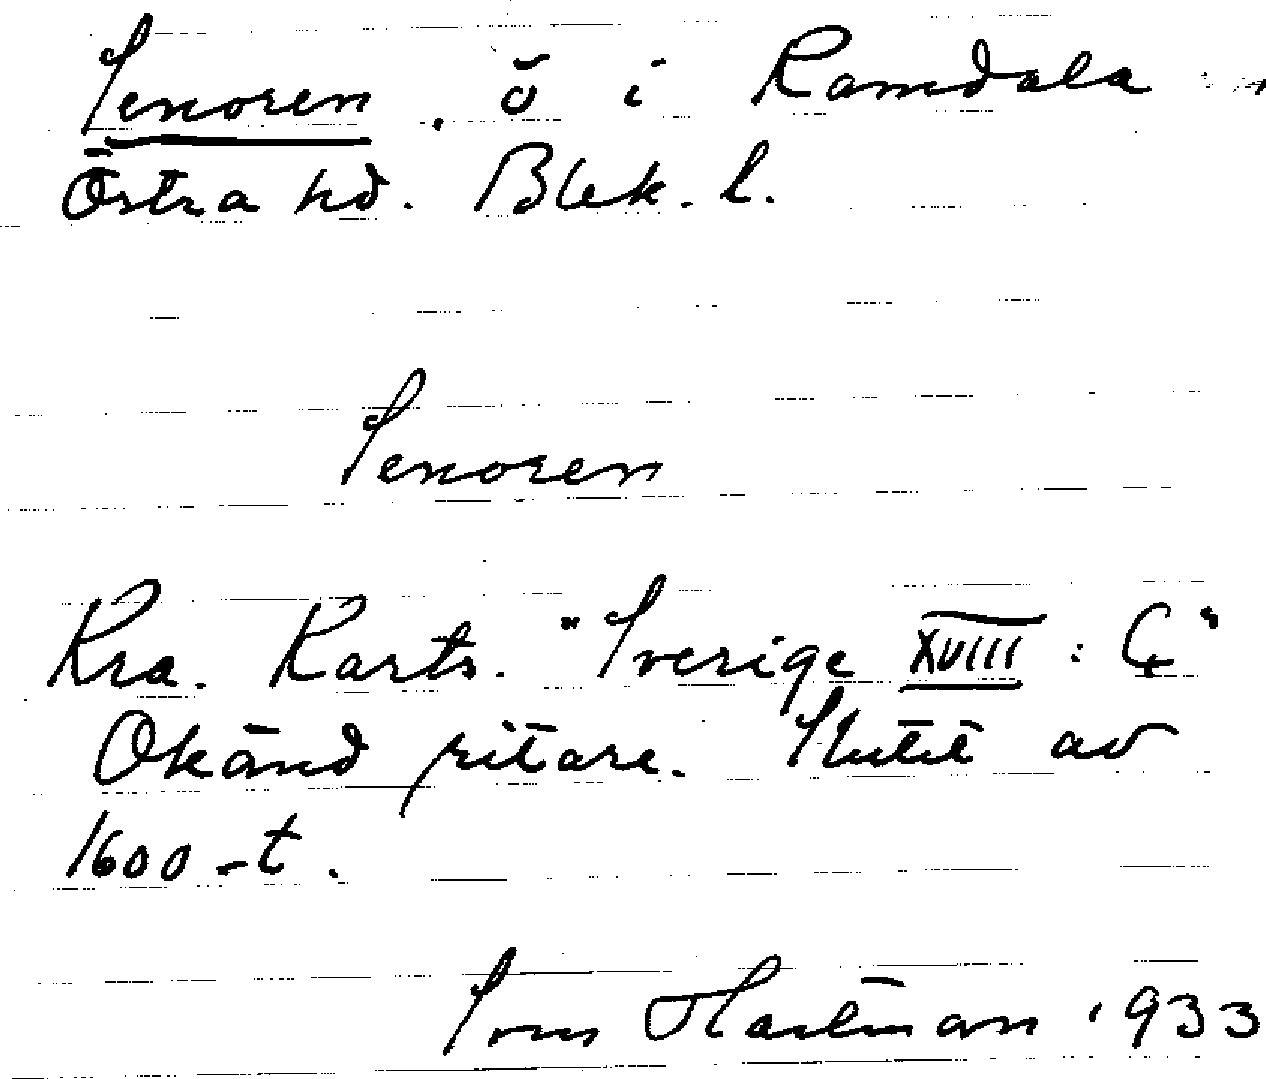 Senoren, ö i Ramdala
Östra hd. Blek. l.
Senoren
Kra. Karts. "Sverige XVIII : G"
Okänd ritare. Slutet av
1600-t.
Sven Hartman 1933